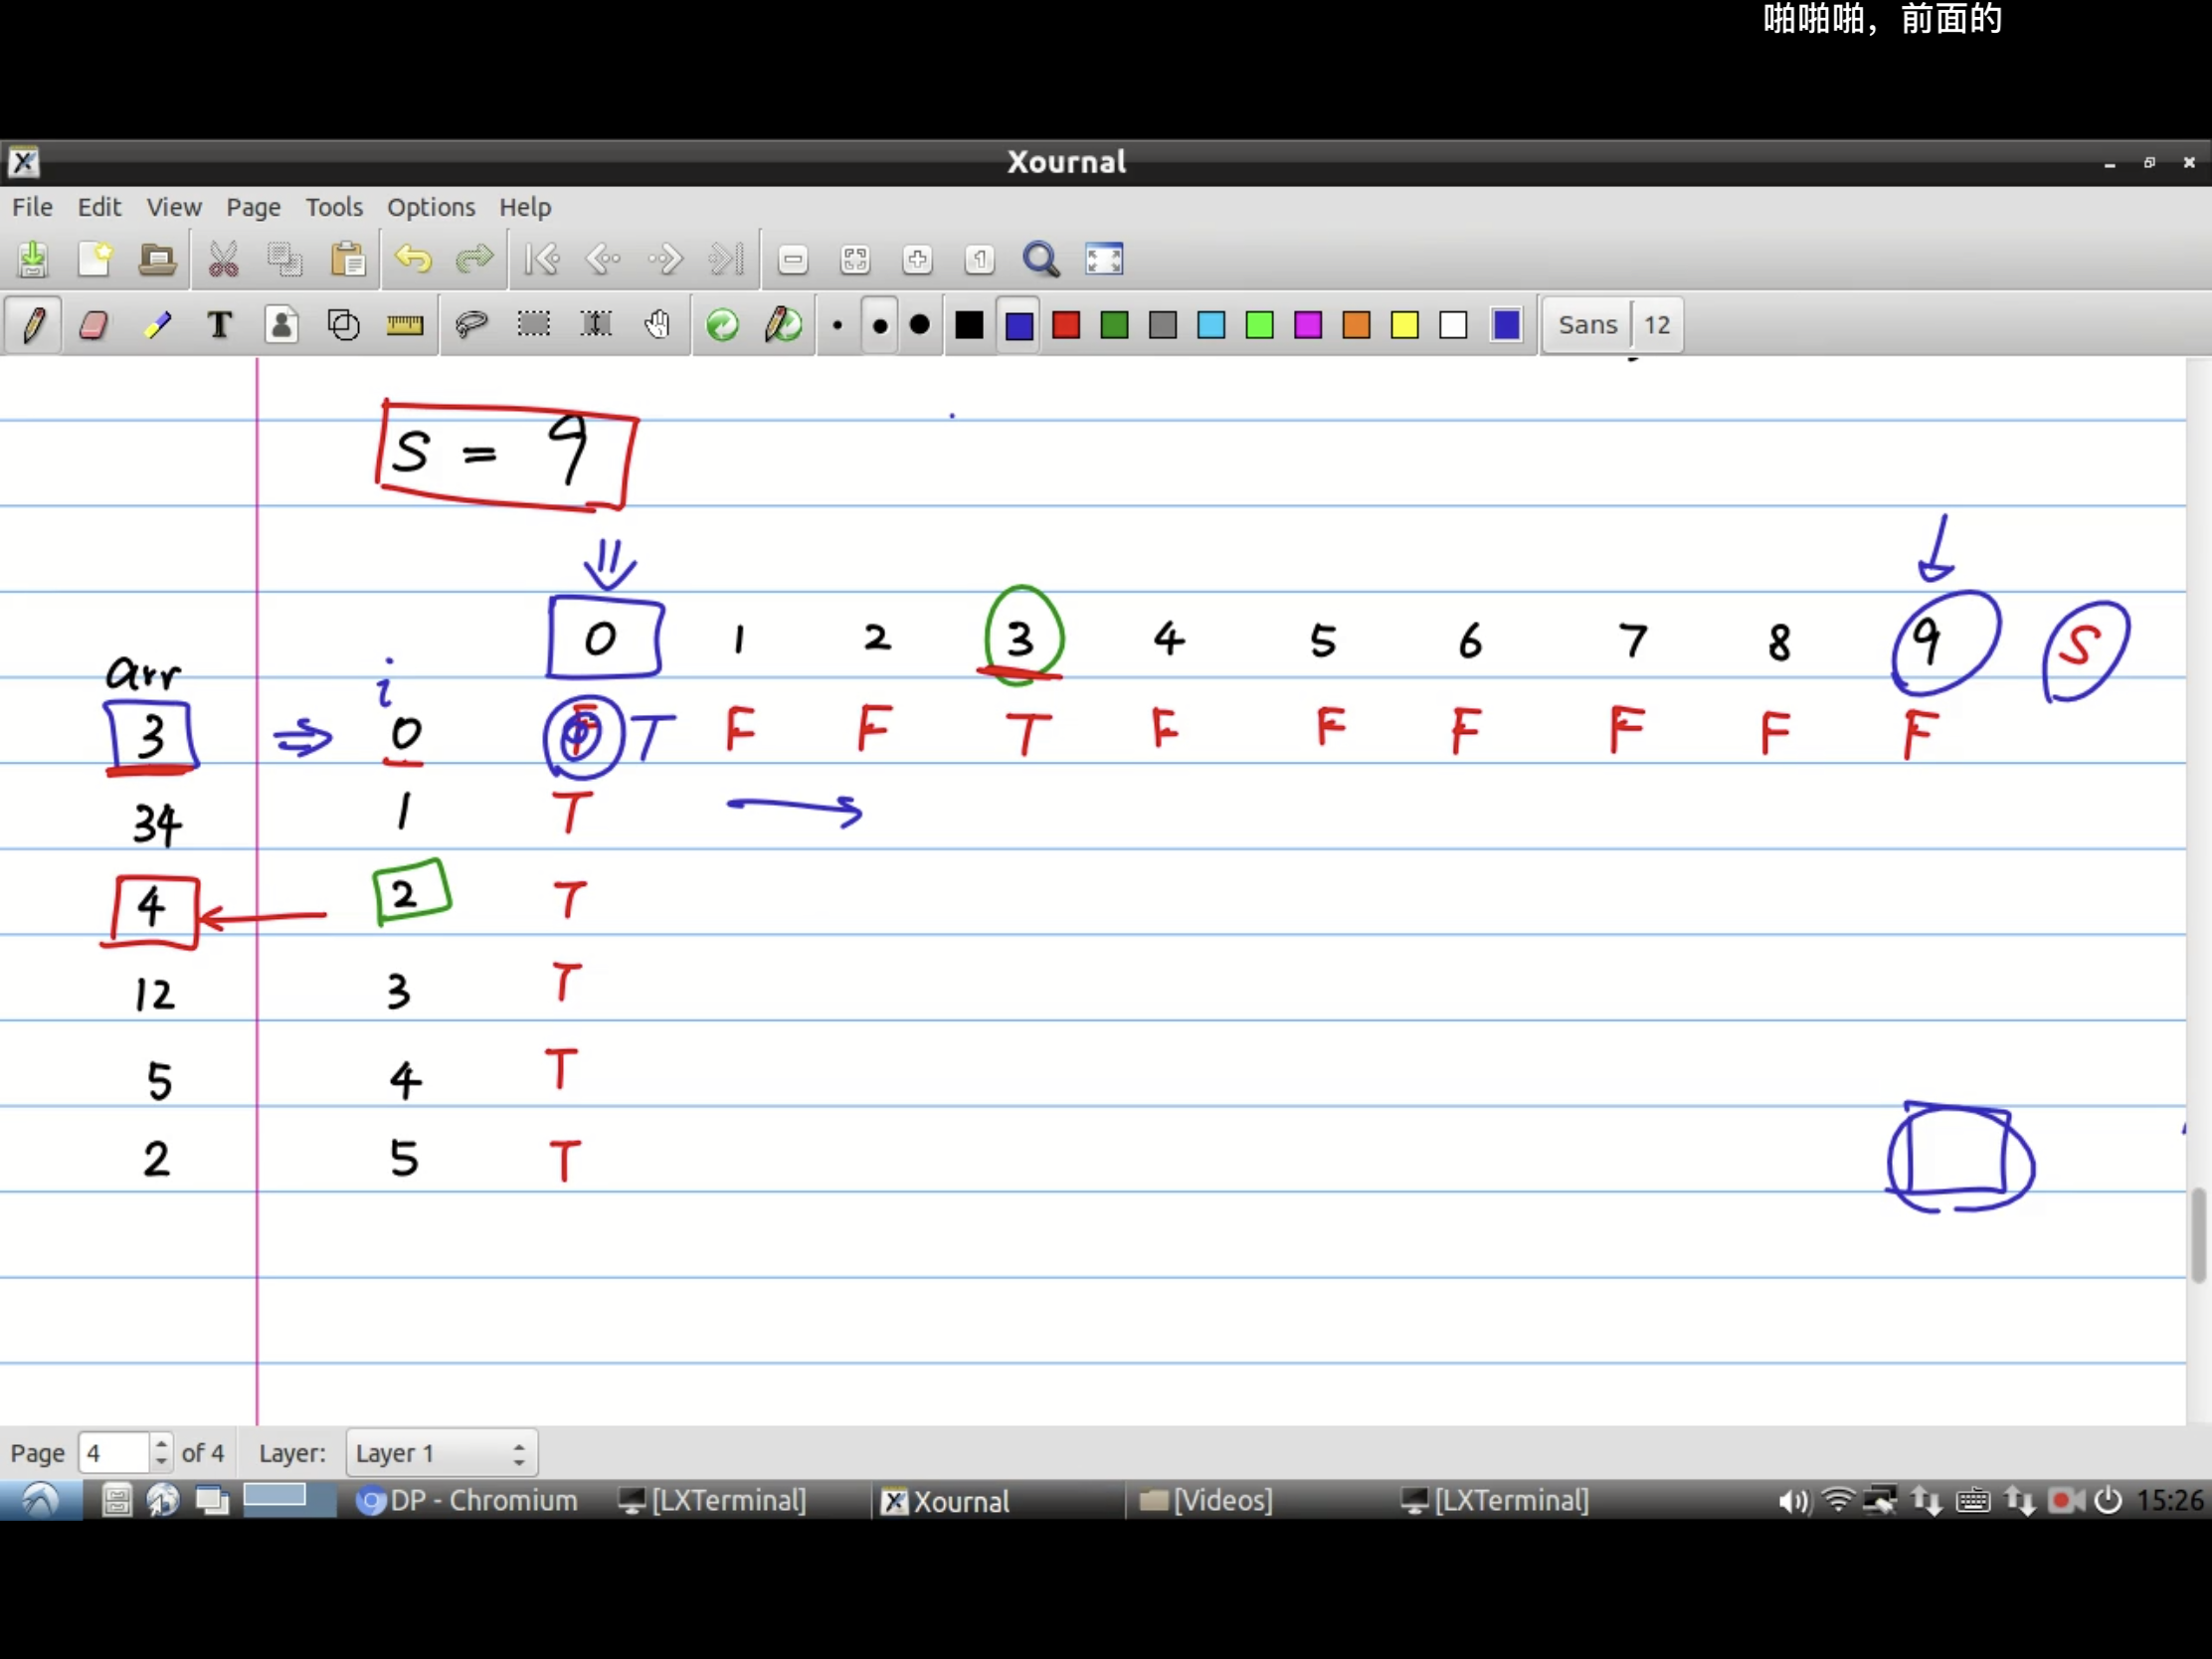 啪啪啪，前面的
Xournal
File Edit View Page Tools Options Help
Sans 12
S = 9
0 1 2 3 4 5 6 7 8 9 S
arr i
3 0 T F F T F F F F F F
34 1 T
4 2 T
12 3 T
5 4 T
2 5 T
Page 4 of 4 Layer: Layer 1
DP - Chromium [LXTerminal] Xournal [Videos] [LXTerminal] 15:26